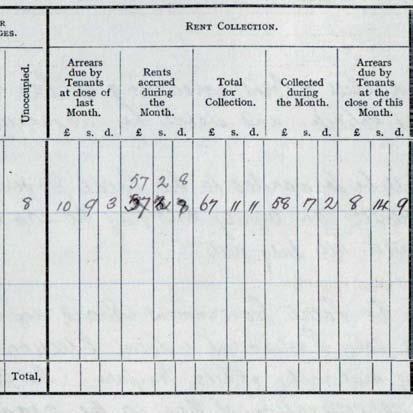 R
GES.
RENT COLLECTION.
Unoccupied.
Arrears due by Tenants at close of last Month.
Rents accrued during the Month.
Total for Collection.
Collected during the Month.
Arrears due by Tenants at the close of this Month.
£ s. d. £ s. d. £ s. d. £ s. d. £ s. d.
57 2 8
8 10 9 3 67 11 11 58 7 2 8 14 9
Total,